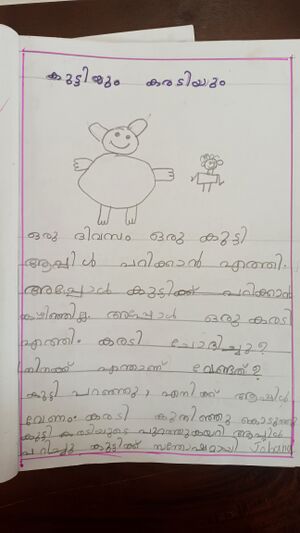 കുട്ടിയും കരടിയും
ഒരു ദിവസം ഒരു കുട്ടി
ആപ്പിൾ പറിക്കാൻ എത്തി.
അപ്പോൾ കുട്ടിക്ക് പറിക്കാൻ
കഴിഞ്ഞില്ല. അപ്പോൾ ഒരു കരടി
എത്തി. കരടി ചോദിച്ചു?
നിനക്ക് എന്താണ് വേണ്ടത്?
കുട്ടി പറഞ്ഞു, എനിക്ക് ആപ്പിൾ
വേണം. കരടി കുനിഞ്ഞു കൊടുത്തു
കുട്ടി കരടിയുടെ പുറത്തുകയറി ആപ്പിൾ
പറിച്ചു കുട്ടിക്ക് സന്തോഷമായി